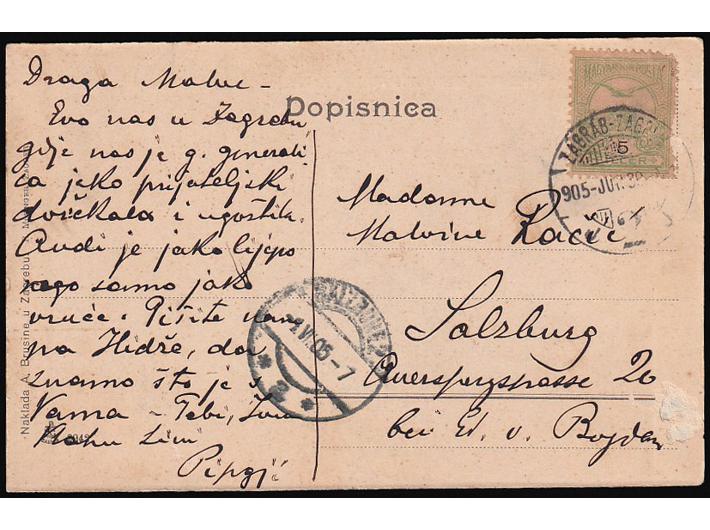 Dopisnica
Draga Malve -
Evo nas u Zagrebu
gdje nas je g. generali-
ca jako prijateljski
dočekala i ugostila.
Ovdi je jako lijepo
nego samo jako
vruće. Pišite nam
pa Hidže, da
znamo što je s
Vama - Tebi, 
Pipgji
Madame
Malvine Racić
Salzburg
Auerspergstrasse 20
bei Ed. v. Bojdan
MAGYAR KIR. POSTA
5
ZÁGRÁB-ZAG
905-JUN.30
SALZBURG 2
1 VII 05-7
* 2 *
Naklada A. Brusine u Zagrebu